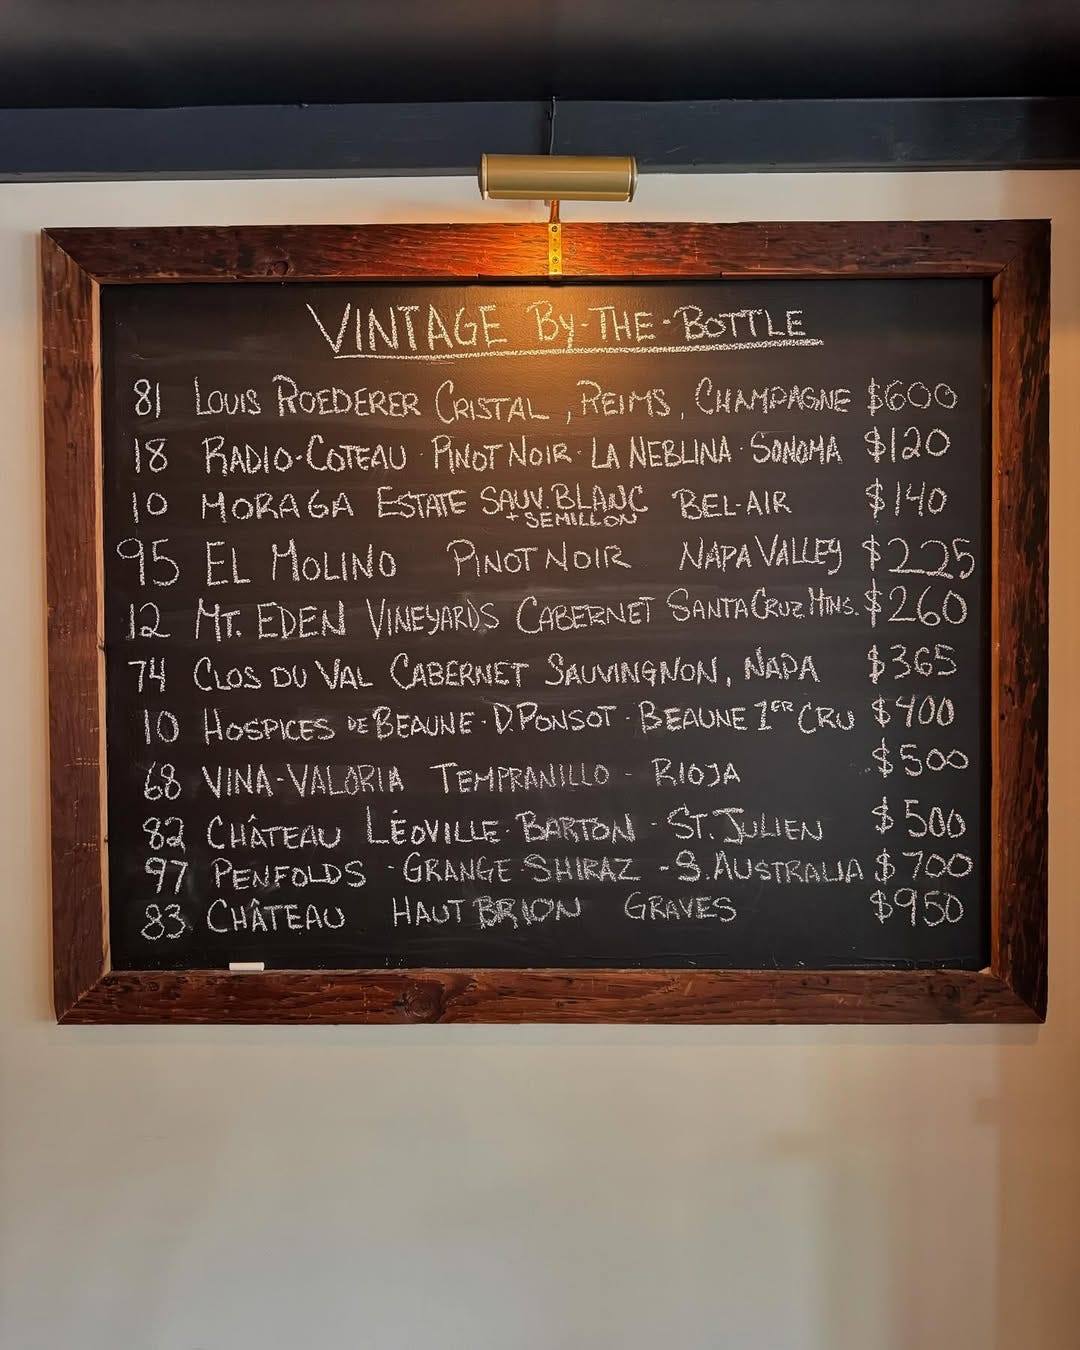 VINTAGE By-THE-BOTTLE
81 LOUIS ROEDERER CRISTAL , REIMS , CHAMPAGNE $600
18 RADIO-COTEAU · PINOT NOIR · LA NEBLINA · SONOMA $120
10 MORAGA ESTATE SAUV. BLANC + SEMILLON BEL-AIR $140
95 EL MOLINO PINOT NOIR NAPA VALLEY $225
12 MT. EDEN VINEYARDS CABERNET SANTA CRUZ MTNS. $260
74 CLOS DU VAL CABERNET SAUVINGNON, NAPA $365
10 HOSPICES DE BEAUNE · D. PONSOT · BEAUNE 1ER CRU $400
68 VINA-VALORIA TEMPRANILLO - RIOJA $500
82 CHÂTEAU LÉOVILLE-BARTON - ST. JULIEN $500
97 PENFOLDS - GRANGE-SHIRAZ - S. AUSTRALIA $700
83 CHÂTEAU HAUT BRION GRAVES $950